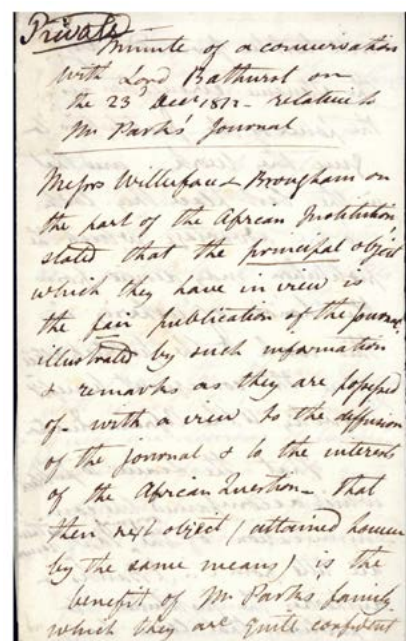 Private
Minute of a conversation
with Lord Bathurst on
the 23d Decr 1812 - relative to
Mr Park's Journal
Messrs Wilberforce & Brougham on
the part of the African Institution,
stated that the principal object
which they have in view is
the fair publication of the Journal,
illustrated by such information
& remarks as they are possessed
of - with a view to the diffusion
of the journal & to the interests
of the African Question - That
their next object (attained however
by the same means) is the
benefit of Mr Park's family
which they are quite confident